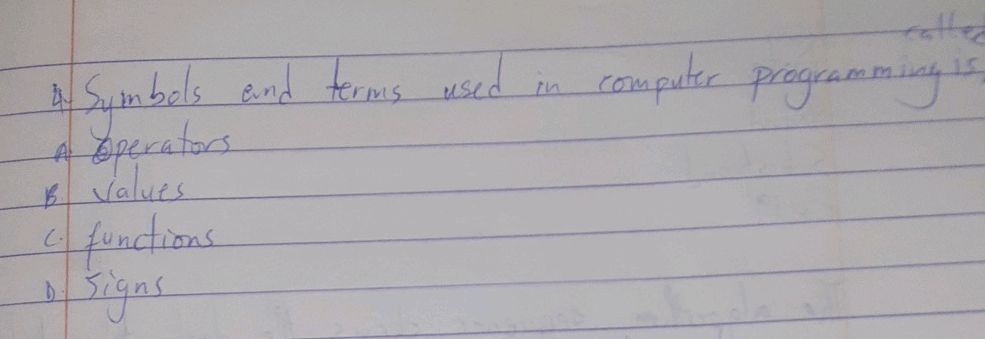 called
4. Symbols and terms used in computer programming is
A. Operators
B. Values
C. functions
D. Signs